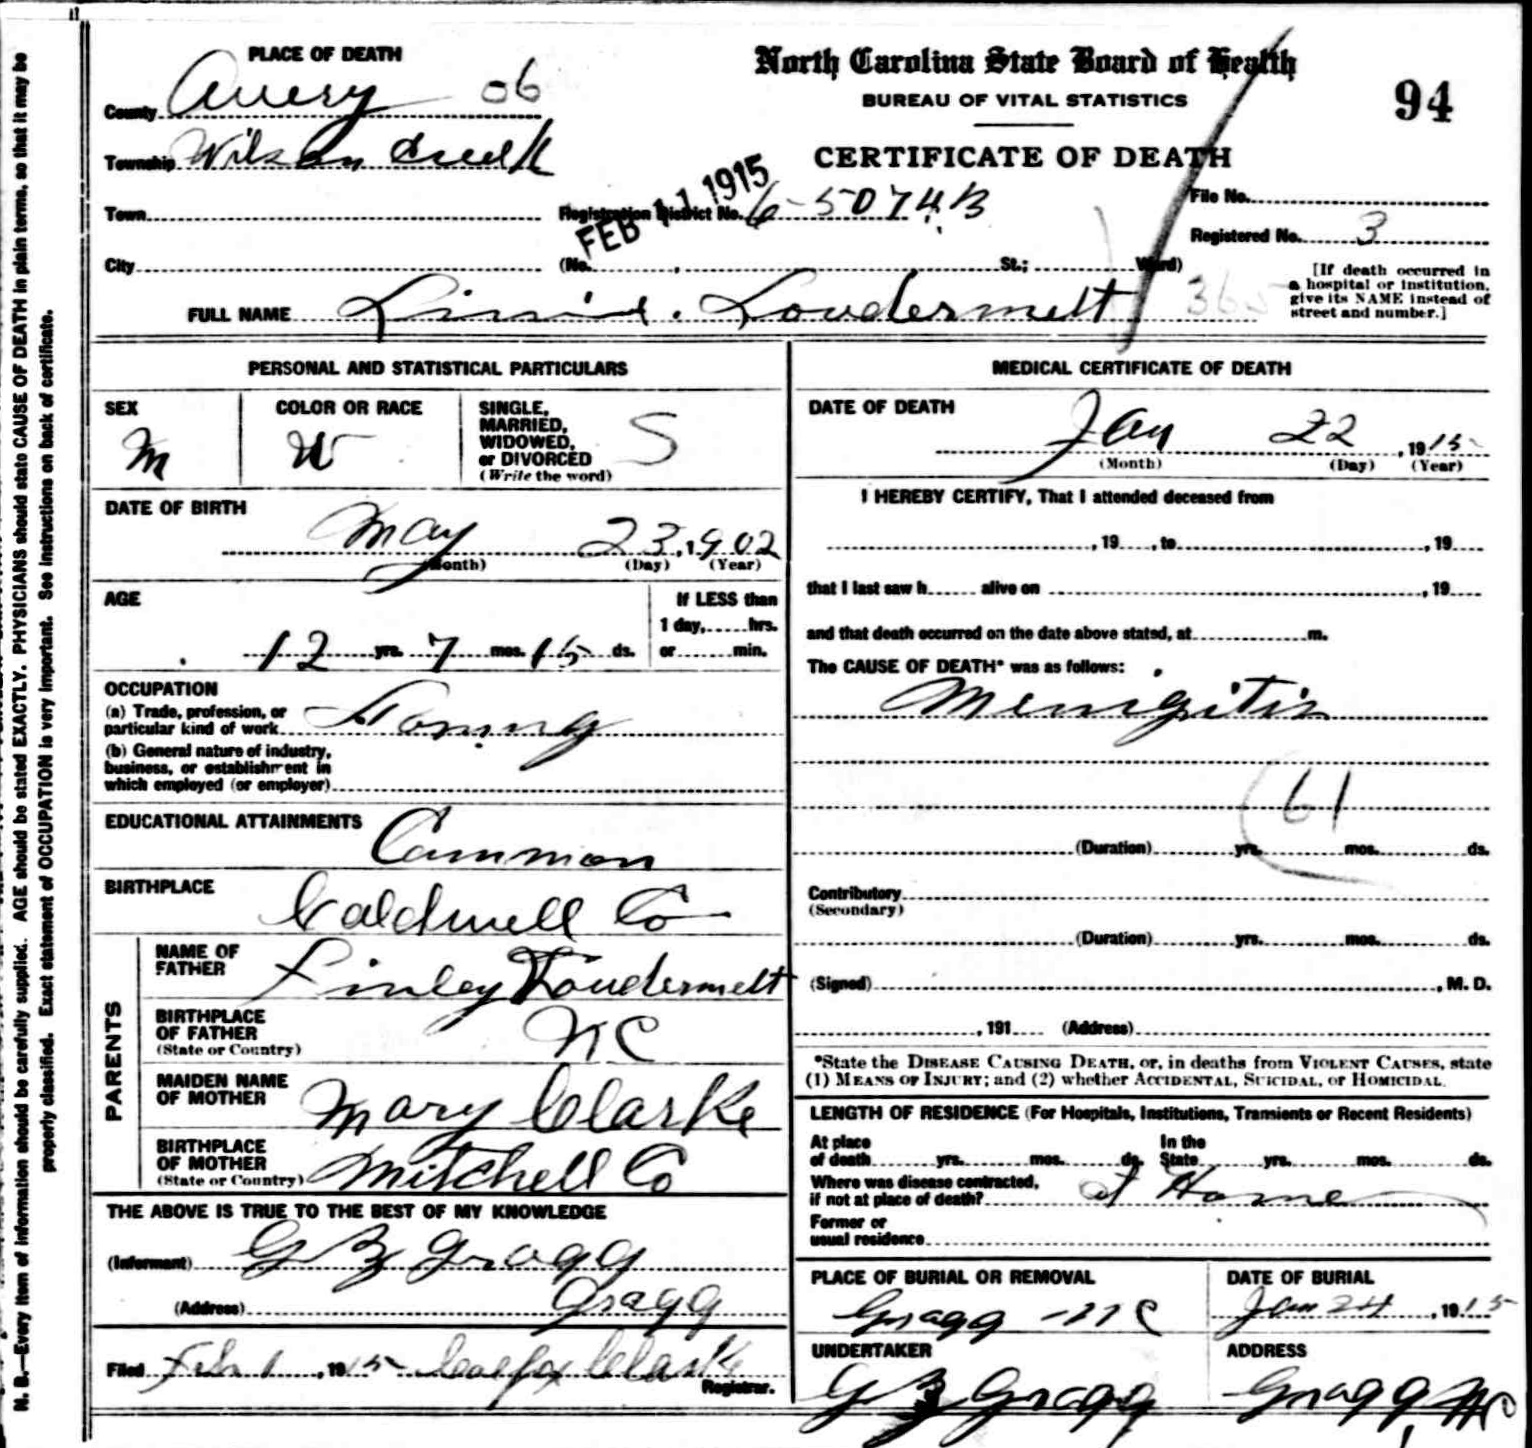 PLACE OF DEATH
County Avery 06
Township Wilson Creek
Town
City
North Carolina State Board of Health
BUREAU OF VITAL STATISTICS
CERTIFICATE OF DEATH
94
FEB 11 1915
Registration District No. 6-5074B
File No.
Registered No. 3
(No. St.; Ward)
[If death occurred in
a hospital or institution,
give its NAME instead of
street and number.]
365
FULL NAME Loudermelt
PERSONAL AND STATISTICAL PARTICULARS
SEX
M
COLOR OR RACE
W
SINGLE,
MARRIED,
WIDOWED,
or DIVORCED
(Write the word)
S
DATE OF BIRTH
May 23, 1902
(Month) (Day) (Year)
AGE
12 yrs. 7 mos. 15 ds.
If LESS than
1 day, hrs.
or min.
OCCUPATION
(a) Trade, profession, or
particular kind of work
(b) General nature of industry,
business, or establishment in
which employed (or employer)
EDUCATIONAL ATTAINMENTS
Common
BIRTHPLACE
Caldwell Co
PARENTS
NAME OF
FATHER
Finley Loudermelt
BIRTHPLACE
OF FATHER
(State or Country)
NC
MAIDEN NAME
OF MOTHER
Mary Clarke
BIRTHPLACE
OF MOTHER
(State or Country)
Mitchell Co
THE ABOVE IS TRUE TO THE BEST OF MY KNOWLEDGE
(Informant) G B Gragg
(Address) Gragg
Filed Feb 1, 1915 Colfax Clark
Registrar.
MEDICAL CERTIFICATE OF DEATH
DATE OF DEATH
Jan 22, 1915
(Month) (Day) (Year)
I HEREBY CERTIFY, That I attended deceased from
, 19 , to , 19
that I last saw h alive on , 19
and that death occurred on the date above stated, at m.
The CAUSE OF DEATH* was as follows:
Menigitis
61
(Duration) yrs. mos. ds.
Contributory
(Secondary)
(Duration) yrs. mos. ds.
(Signed) , M. D.
, 191 (Address)
*State the DISEASE CAUSING DEATH, or, in deaths from VIOLENT CAUSES, state
(1) MEANS OF INJURY; and (2) whether ACCIDENTAL, SUICIDAL, or HOMICIDAL.
LENGTH OF RESIDENCE (For Hospitals, Institutions, Transients or Recent Residents)
At place
of death yrs. mos. ds.
In the
State yrs. mos. ds.
Where was disease contracted,
if not at place of death? at Home
Former or
usual residence
PLACE OF BURIAL OR REMOVAL
Gragg NC
DATE OF BURIAL
Jan 24, 1915
UNDERTAKER
G B Gragg
ADDRESS
Gragg NC
N. B.—Every item of information should be carefully supplied. AGE should be stated EXACTLY. PHYSICIANS should state CAUSE OF DEATH in plain terms, so that it may be
properly classified. Exact statement of OCCUPATION is very important. See instructions on back of certificate.